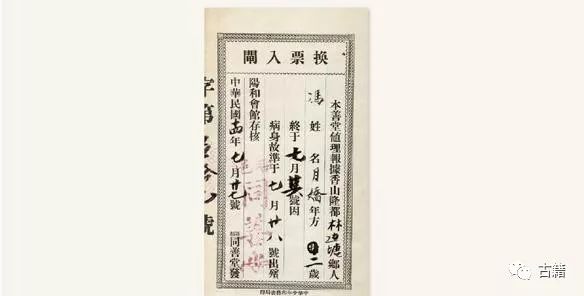 換票入閘
本善堂值理報據香山隆都林塘鄉人
馮姓名月年方二歲
終于七月號因
病身故準于七月廿八號出殯
陽和會館存核
中華民國年七月廿七號
同善堂發
字第號
同善
古籍